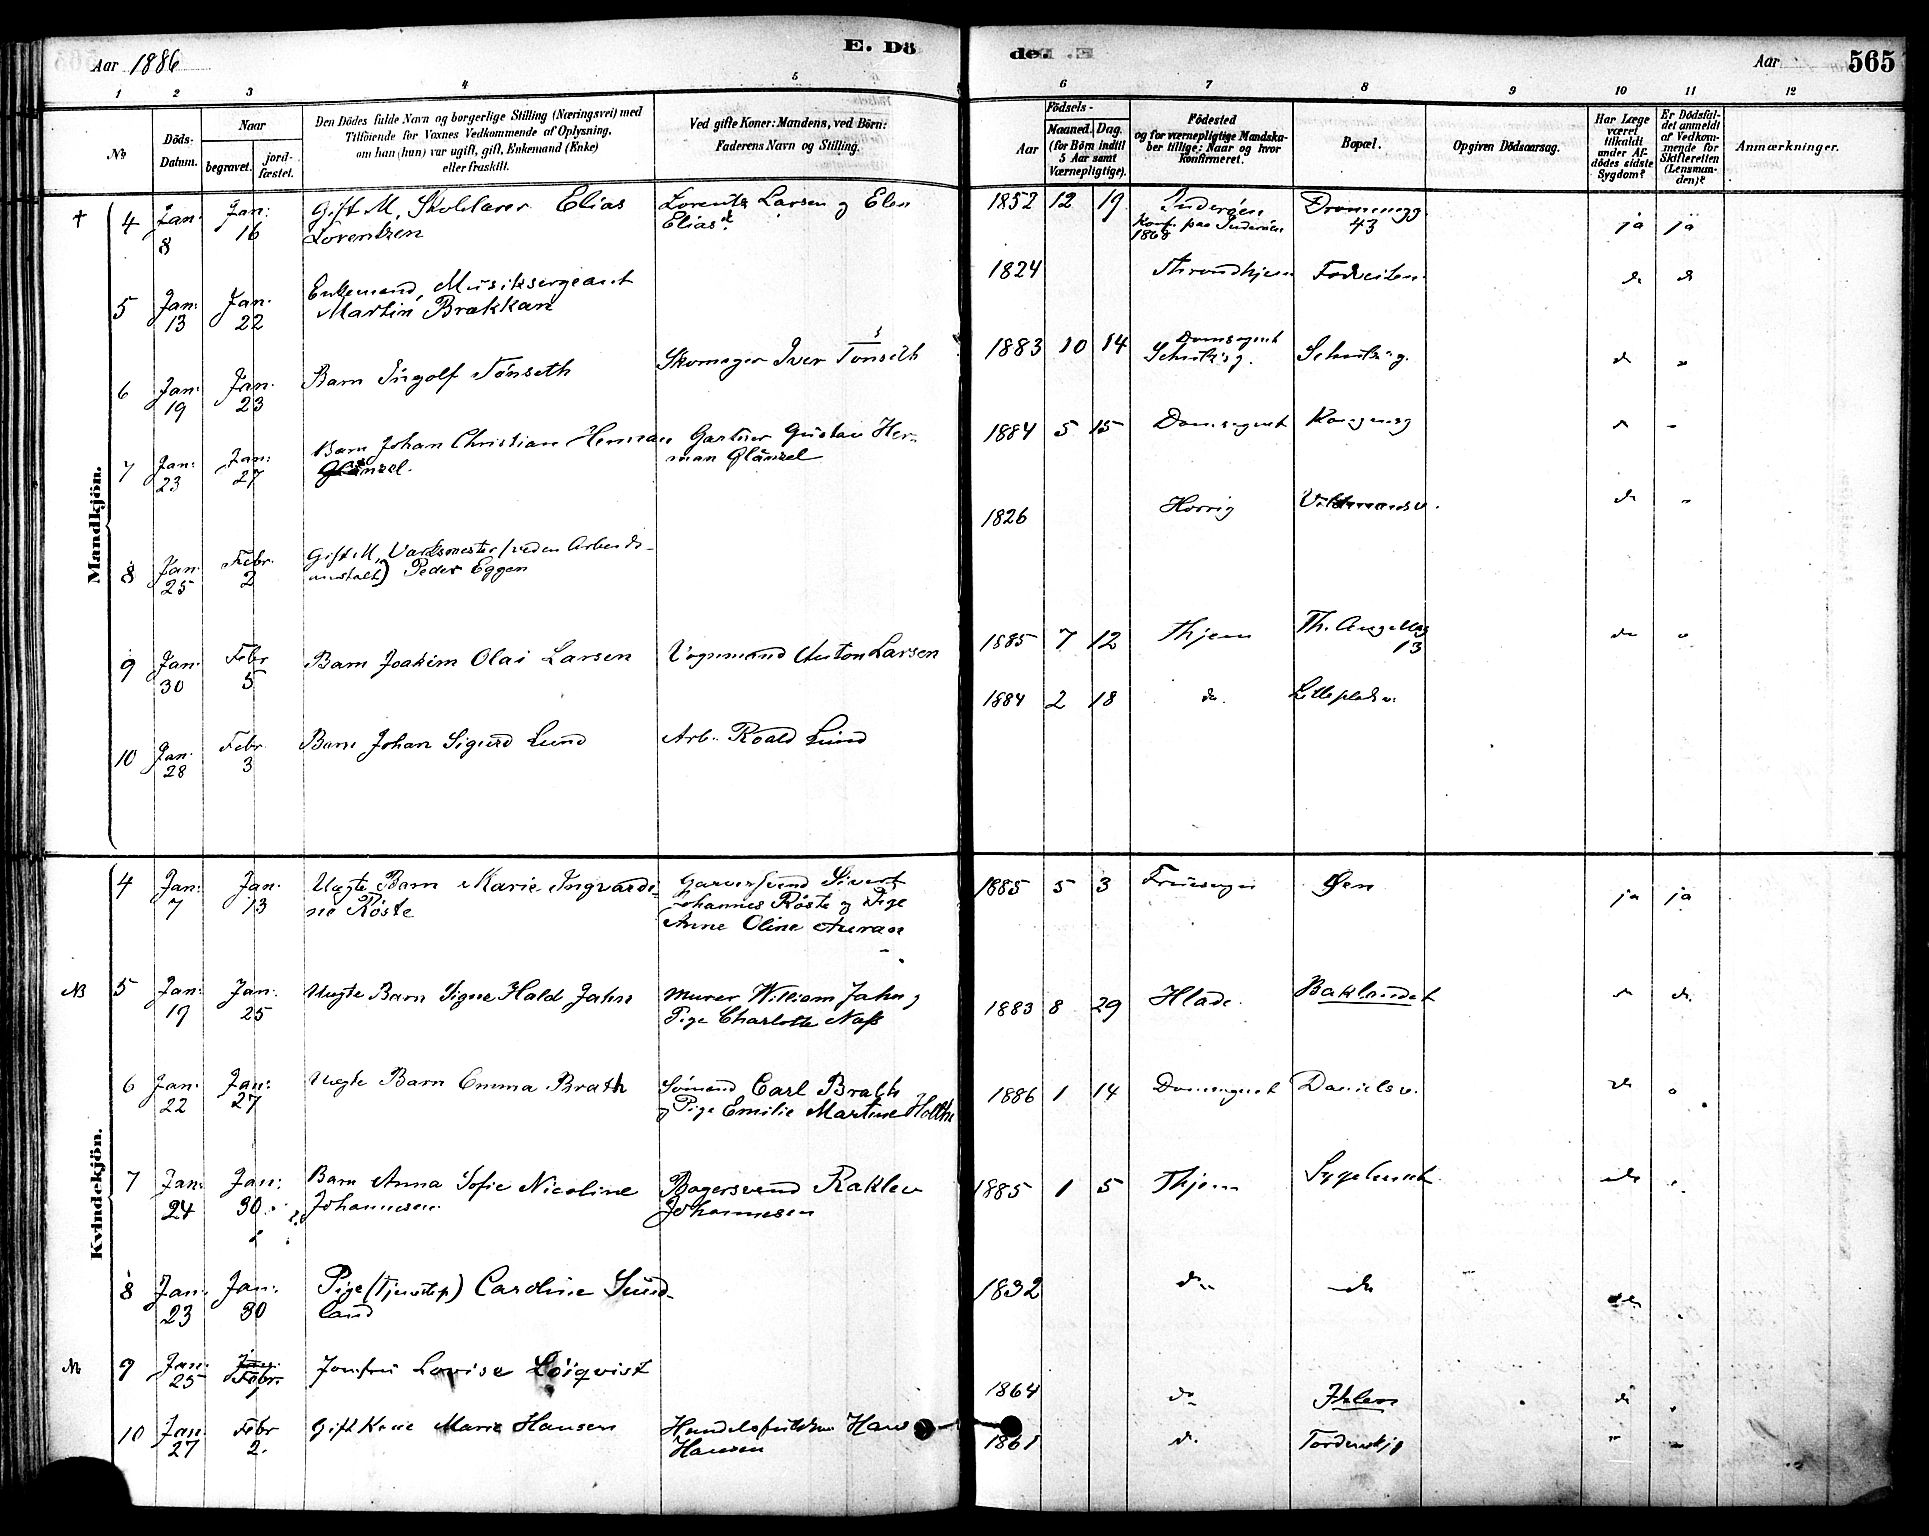 Aar 1886
E. Dö
de. E.
Aar
565
1 2 3 4 5 6 7 8 9 10 11 12
No
Döds-
Datum.
Naar
begravet.
jord-
fæstet.
Den Dödes fulde Navn og borgerlige Stilling (Næringsvei) med
Tilföiende for Voxnes Vedkommende af Oplysning,
om han (hun) var ugift, gift, Enkemand (Enke)
eller fraskilt.
Ved gifte Koner: Mandens, ved Börn:
Faderens Navn og Stilling.
Födsels-
Aar
Maaned. Dag.
(for Börn indtil
5 Aar samt
Værnepligtige).
Födested
og for værnepligtige Mandska-
ber tillige: Naar og hvor
Konfirmeret.
Bopæl.
Opgiven Dödsaarsag.
Har Læge
været
tilkaldt
under Af-
dödes sidste
Sygdom?
Er Dödsfal-
det anmeldt
af Vedkom-
mende for
Skifteretten
(Lensman-
den)?
Anmærkninger.
Mandkjön.
4 Jan. 8 Jan: 16 Gift M, Skolelærer Elias Lorentzen
Lorentz Larsen og Elen Elias
1852 12 19 Inderøen Konf. paa Inderøen 1868 43 ja ja
5 Jan: 13 Jan. 22 Enkemand, Musiksergeant
Martin Brækkan
1824 Throndhjem do do
6 Jan: 19 Jan. 23 Barn Ingolf Tönseth
Skomager Iver Tönseth
1883 10 14 Domsognet do "
7 Jan: 23 Jan: 27 Barn Johan Christian Herman
Glänzel.
Gartner Gustav Her-
man Glänzel
1884 5 15 Domsognet do "
8 Jan: 25 Febr. 2 Gift M, (ved en Arbeids-
anstalt) Peder Eggen
1826 do "
9 Jan: 30 Febr 5 Barn Joakim Olai Larsen
Vognmand Anton Larsen
1885 7 12 Thjem Th. Angellsg 13 do "
10 Jan. 28 Febr. 3 Barn Johan Sigurd Lund
Arb. Roald Lund
1884 2 18 do.
Kvindekjön.
4 Jan. 7 Jan. 13 Uægte Barn Marie Ingvardi-
ne Röste
Garversvend Sivert
Johannes Röste og Pige
Anne Oline Auran
1885 5 3 Øen ja ja
NB 5 Jan: 19 Jan. 25 Uægte Barn Signe Hald Jahn
Murer William Jahn og
Pige Charlotte Næss
1883 8 29 Hlade. Baklandet do do.
6 Jan: 22 Jan: 27 Uægte Barn Emma Brath
Sömand Carl Brath
og Pige Emilie Martine
1886 1 14 Domsognet Danielsv. do "
7 Jan: 24 Jan: 30 Barn Anna Sofie Nicoline
Johannesen.
Bagersvend Raklev
Johannesen
1885 1 5 Thjem do "
8 Jan: 23 Jan: 30 Pige (Tjenstep) Caroline Sund-
land
1832 do do do
9 Jan: 25 Febr. 1 Jomfru Lovise Löiqvist
1864 do Ihlen do "
10 Jan: 27 Febr 2. Gift Kone Marie Hansen
Hans
Hansen
1861 do. Tordenskj " "